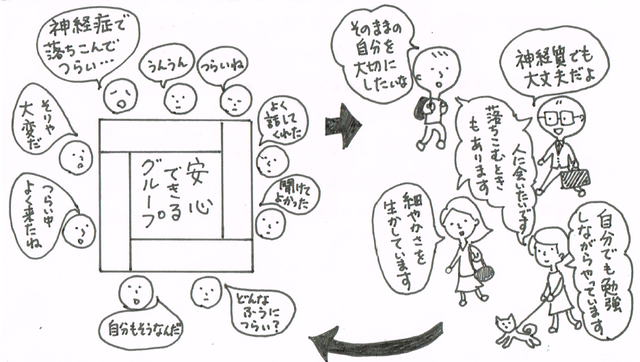 神経症で
落ちこんで
つらい…
うんうん
つらいね
よく
話して
くれた
聞けて
よかった
どんな
ふうに
つらい?
自分もそうなんだ
つらい中
よく来たね
そりゃ
大変だ
安心
できる
グループ
そのままの
自分を
大切に
したいな
神経質でも
大丈夫だよ
人に会いたいです
落ちこむとき
もあります
細やかさを
生かしています
自分でも勉強
しながらやっています